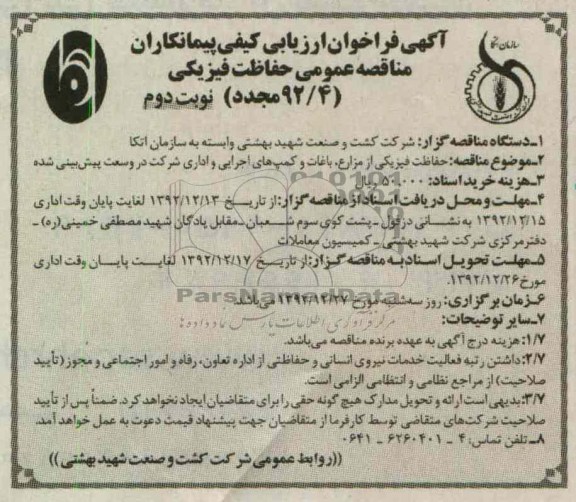 سازمان اتکا
آگهی فراخوان ارزیابی کیفی پیمانکاران
مناقصه عمومی حفاظت فیزیکی
(۹۲/۴ مجدد) نوبت دوم
۱ـ دستگاه مناقصه گزار: شرکت کشت و صنعت شهید بهشتی وابسته به سازمان اتکا
۲ـ موضوع مناقصه: حفاظت فیزیکی از مزارع، باغات و کمپ‌های اجرایی و اداری شرکت در وسعت پیش‌بینی شده
۳ـ هزینه خرید اسناد: ۵۰۰۰۰۰ ریال
۴ـ مهلت و محل دریافت اسناد از مناقصه گزار: از تاریخ ۱۳۹۲/۱۲/۱۳ لغایت پایان وقت اداری
۱۳۹۲/۱۲/۱۵ به نشانی دزفول ـ پشت کوی سوم شعبان ـ مقابل پادگان شهید مصطفی خمینی(ره) ـ
دفتر مرکزی شرکت شهید بهشتی ـ کمیسیون معاملات
۵ـ مهلت تحویل اسناد به مناقصه گزار: از تاریخ ۱۳۹۲/۱۲/۱۷ لغایت پایان وقت اداری
مورخ ۱۳۹۲/۱۲/۲۶.
۶ـ زمان برگزاری: روز سه‌شنبه مورخ ۱۳۹۲/۱۲/۲۷ می‌باشد.
۷ـ سایر توضیحات:
۱/۷: هزینه درج آگهی به عهده برنده مناقصه می‌باشد.
۲/۷: داشتن رتبه فعالیت خدمات نیروی انسانی و حفاظتی از اداره تعاون، رفاه و امور اجتماعی و مجوز (تأیید
صلاحیت) از مراجع نظامی و انتظامی الزامی است.
۳/۷: بدیهی است ارائه و تحویل مدارک هیچ گونه حقی را برای متقاضیان ایجاد نخواهد کرد. ضمناً پس از تأیید
صلاحیت شرکت‌های متقاضی توسط کارفرما از متقاضیان جهت پیشنهاد قیمت دعوت به عمل خواهد آمد.
۸ـ تلفن تماس: ۴ - ۶۲۶۰۴۰۱ - ۰۶۴۱
((روابط عمومی شرکت کشت و صنعت شهید بهشتی))
ParsNamadData
مرکز فرآوری اطلاعات پارس نماد داده‌ها